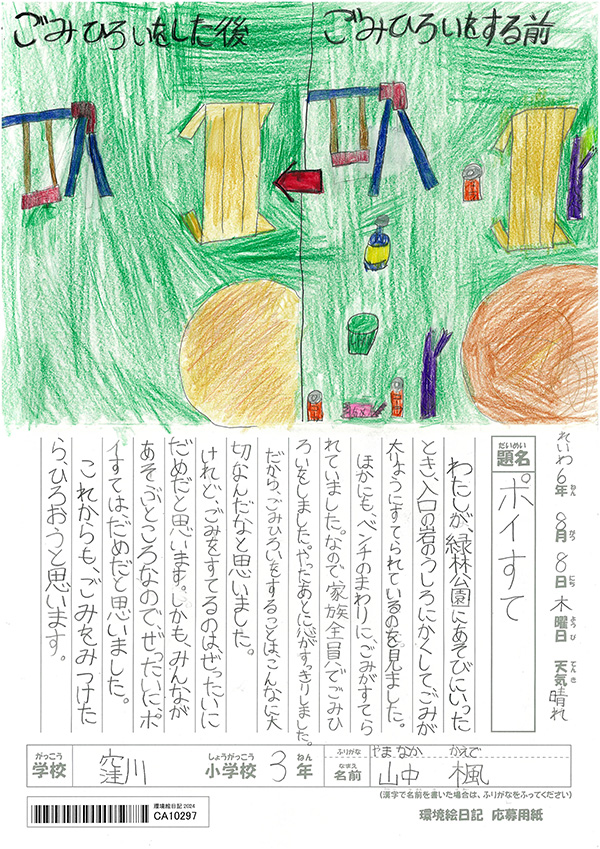 ごみひろいをした後
ごみひろいをする前
れいわ6年 8月 8日 木曜日 天気 晴れ
ねん がつ にち ようび てんき
だいめい
題名
ポイすて
わたしが、緑林公園にあそびにいった
とき、入口の岩のうしろにかくしてごみが
大りょうにすてられているのを見ました。
ほかにも、ベンチのまわりに、ごみがすてら
れていました。なので、家族全員でごみひ
ろいをしました。やったあとに心がすっきりしました。
だから、ごみひろいをすることは、こんなに大
切なんだなと思いました。
けれど、ごみをすてるのはぜったいに
だめだと思います。しかも、みんなが
あそぶところなので、ぜったいにポ
イすてはだめだと思いました。
これからも、ごみをみつけた
ら、ひろおうと思います。
がっこう しょうがっこう ねん
学校 窪川 小学校 3年
ふりがな やまなか かえで
なまえ
名前 山中 楓
(漢字で名前を書いた場合は、ふりがなをふってください)
環境絵日記 2024
CA10297
環境絵日記 応募用紙